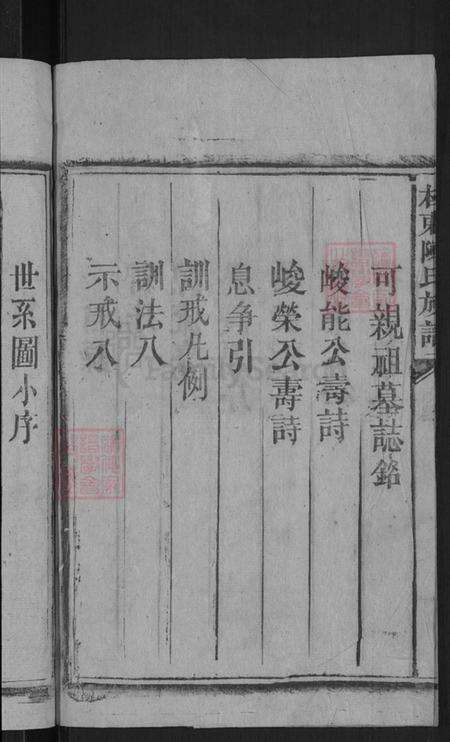 東陳氏族譜
可親祖墓誌銘
峻能公壽詩
峻榮公壽詩
息爭引
訓戒凡例
訓法八
示戒八
世系圖小序